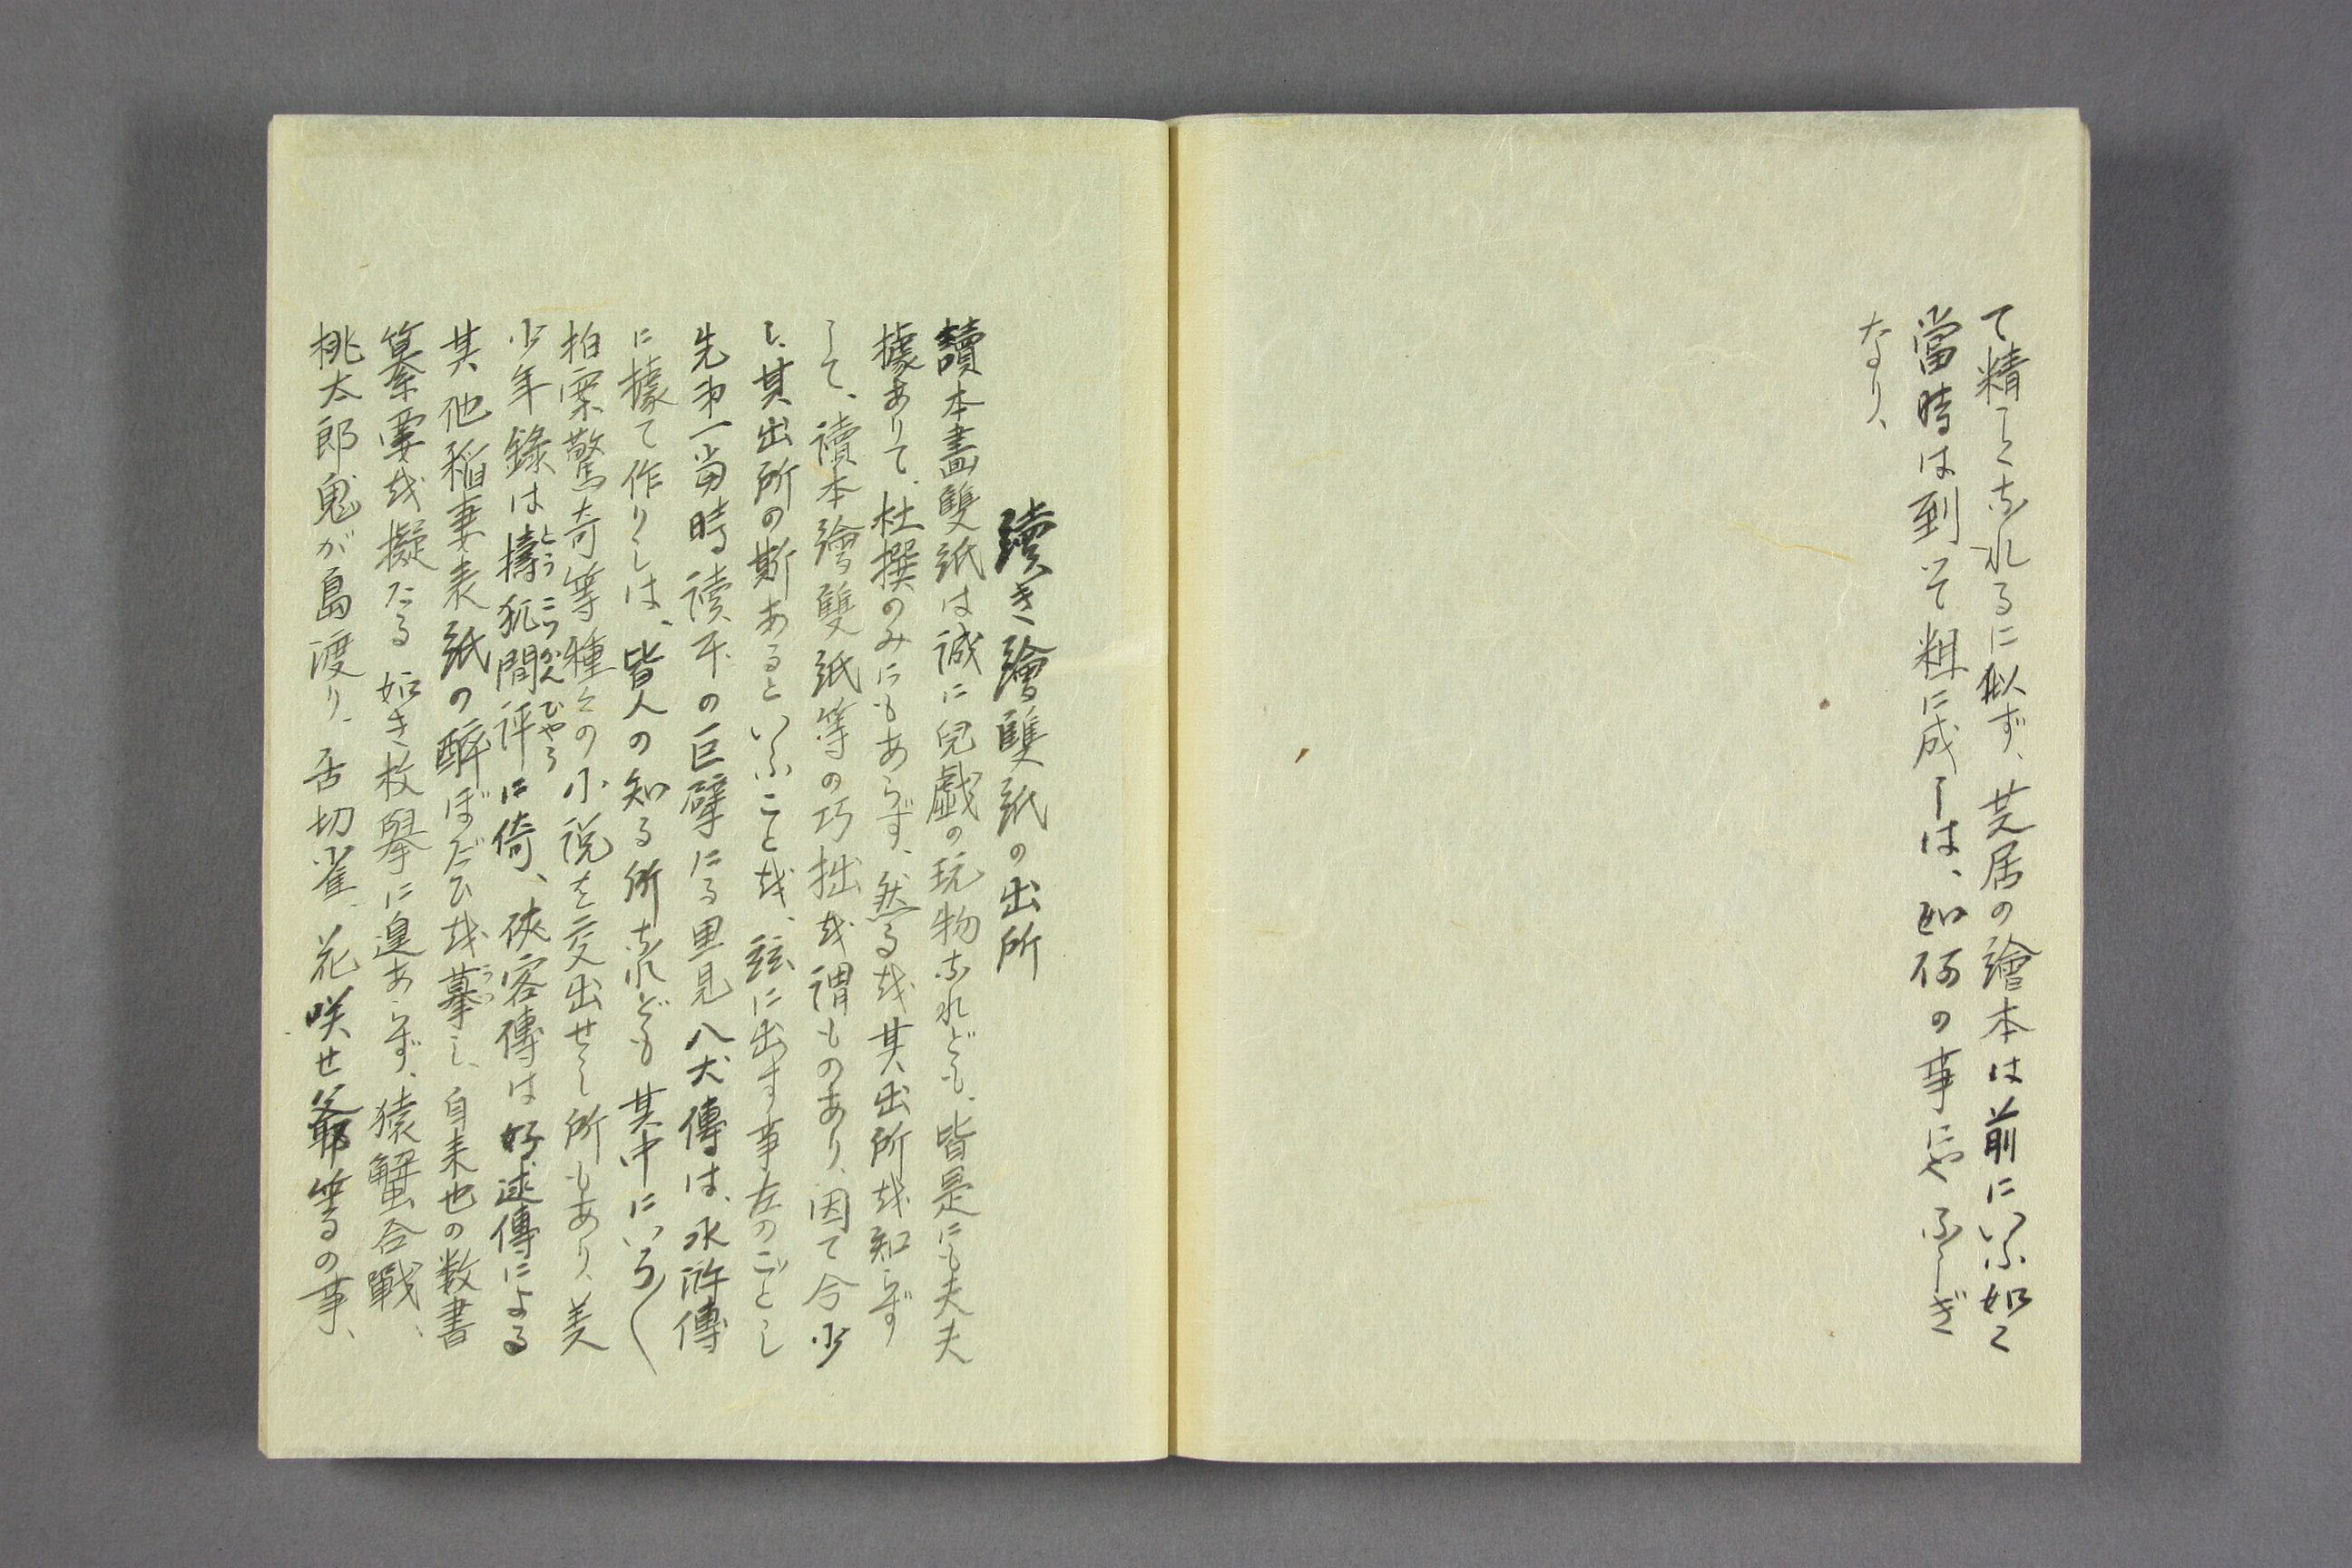 て精くなれるに似ず、芝居の繪本は前にいふ如く
當時は到て粗に成しは、如何の事にやふしぎ
なり、
續き繪雙紙の出所
讀本畫雙紙は誠に兒戯の玩物なれども、皆是にも夫夫
據ありて、杜撰のみにもあらず、然る或其出所或知らず
して、讀本繪雙紙等の巧拙或謂ものあり、因て今少
し其出所の斯あるといふこと或、玆に出す事左のごとし
先第一當時讀本の巨擘にる里見八犬傳は、水滸傳
に據て作りしは、皆人の知る所なれども其中にいろ〱
拍案驚奇等種々の小説を交出せし所もあり、美
少年錄は檮とうこつかんひやう狐間評に倚、俠客傳は好逑傳による
其他稲妻表紙の酔ぼだひ或摹うつし、自来也の数書
纂要或擬たる如き枚擧に遑あらず、猿蟹合戰、
桃太郎鬼が島渡り、舌切雀、花咲せ爺等の事、